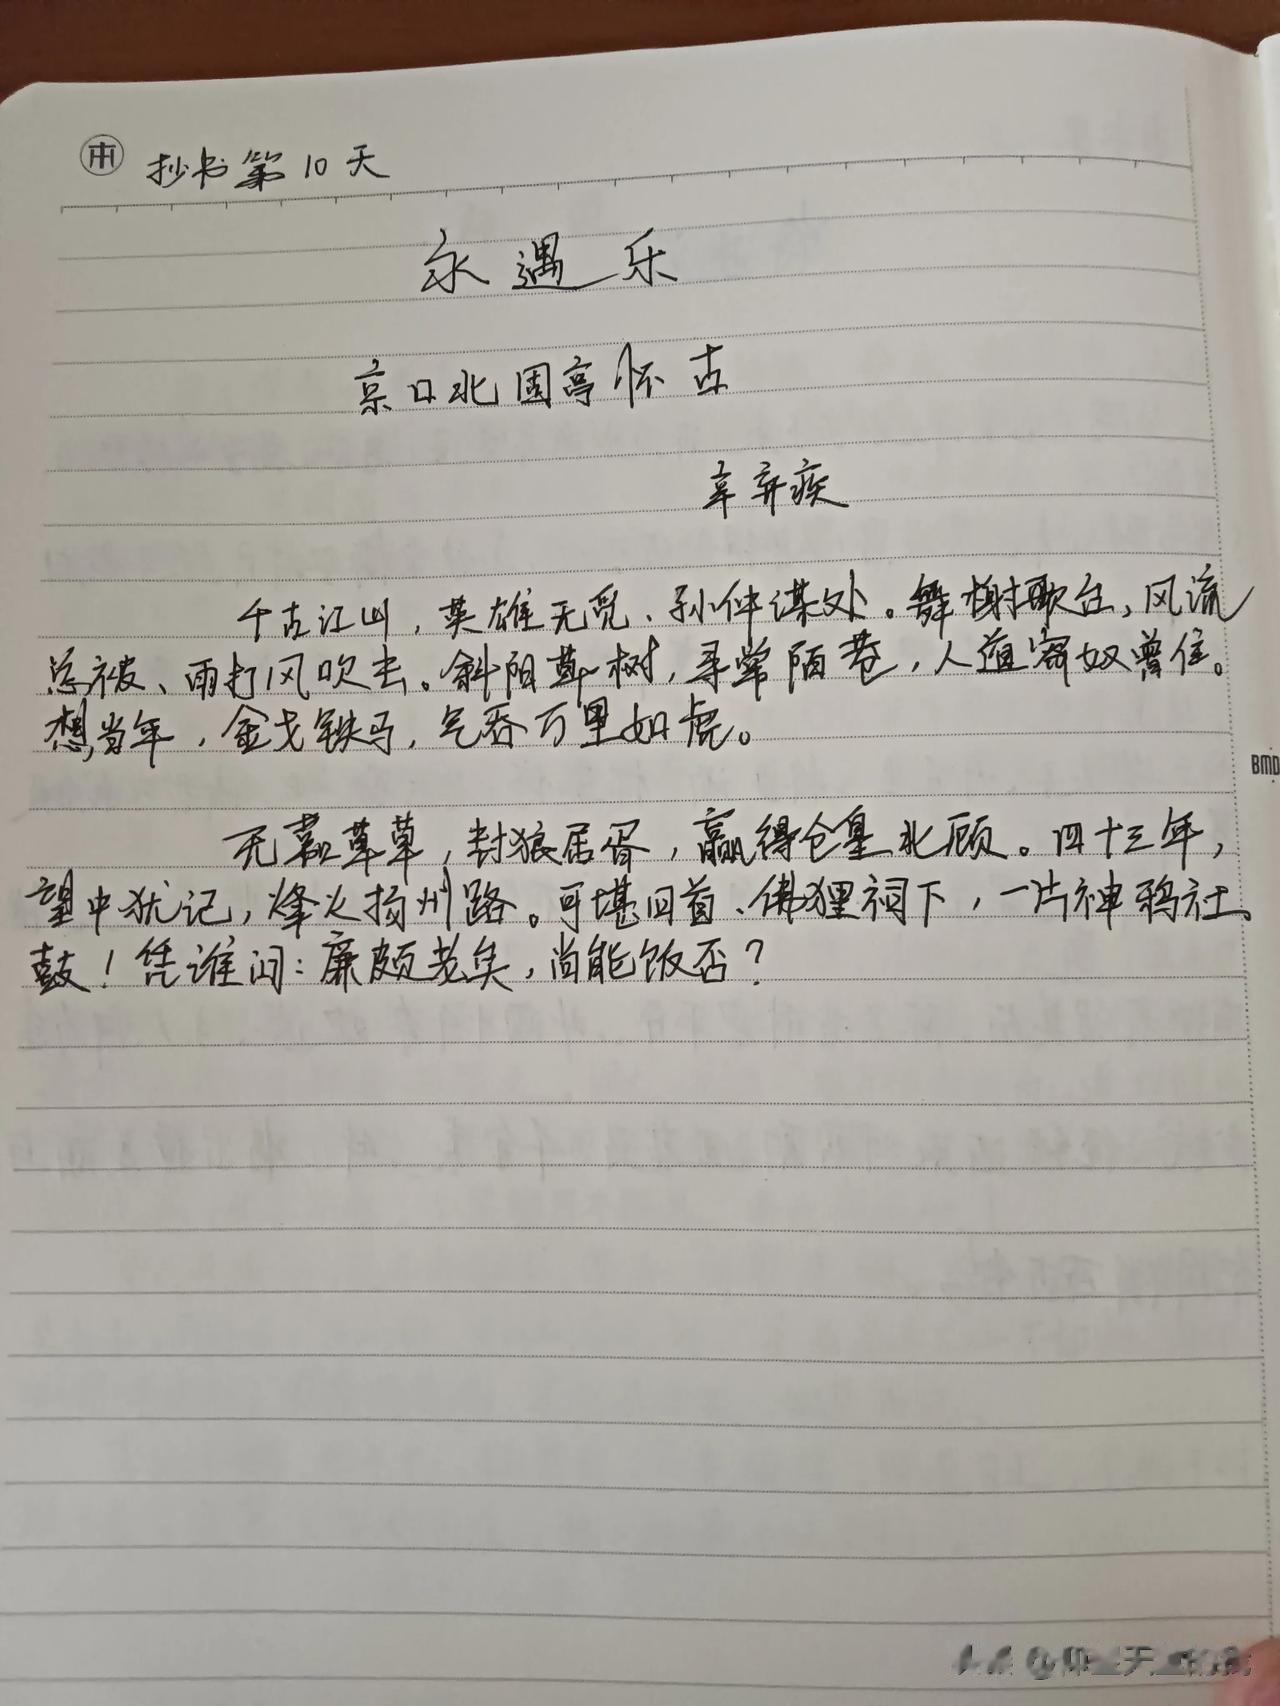 本 抄书第10天
永遇乐
京口北固亭怀古
辛弃疾
千古江山，英雄无觅、孙仲谋处。舞榭歌台，风流
总被、雨打风吹去。斜阳草树，寻常陌巷，人道寄奴曾住。
想当年，金戈铁马，气吞万里如虎。
元嘉草草，封狼居胥，赢得仓皇北顾。四十三年，
望中犹记，烽火扬州路。可堪回首、佛狸祠下，一片神鸦社
鼓！凭谁问：廉颇老矣，尚能饭否？
BMD